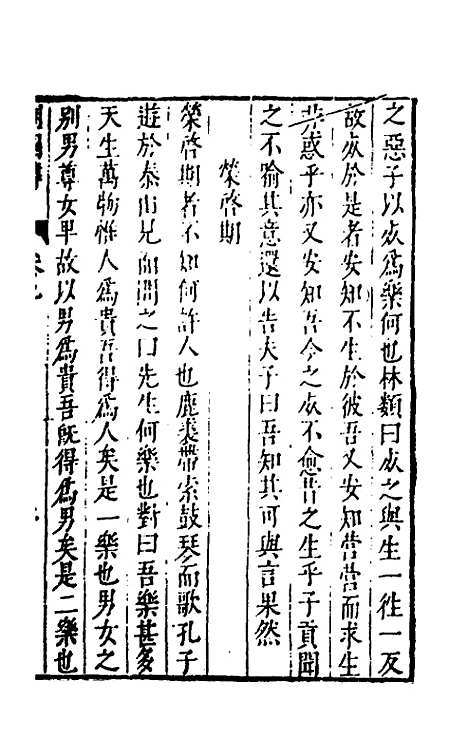 之惡子以死爲樂何也林類曰死之與生一徃一反
故死於是者安知不生於彼吾又安知營營而求生
非惑乎亦又安知吾今之死不愈昔之生乎子貢聞
之不喻其意還以告夫子曰吾知其可與言果然
榮啓期
榮啓期者不知何許人也鹿裘帶索鼓琴而歌孔子
遊於泰山見而問之曰先生何樂也對曰吾樂甚多
天生萬物惟人爲貴吾得爲人矣是一樂也男女之
別男尊女卑故以男爲貴吾旣得爲男矣是二樂也